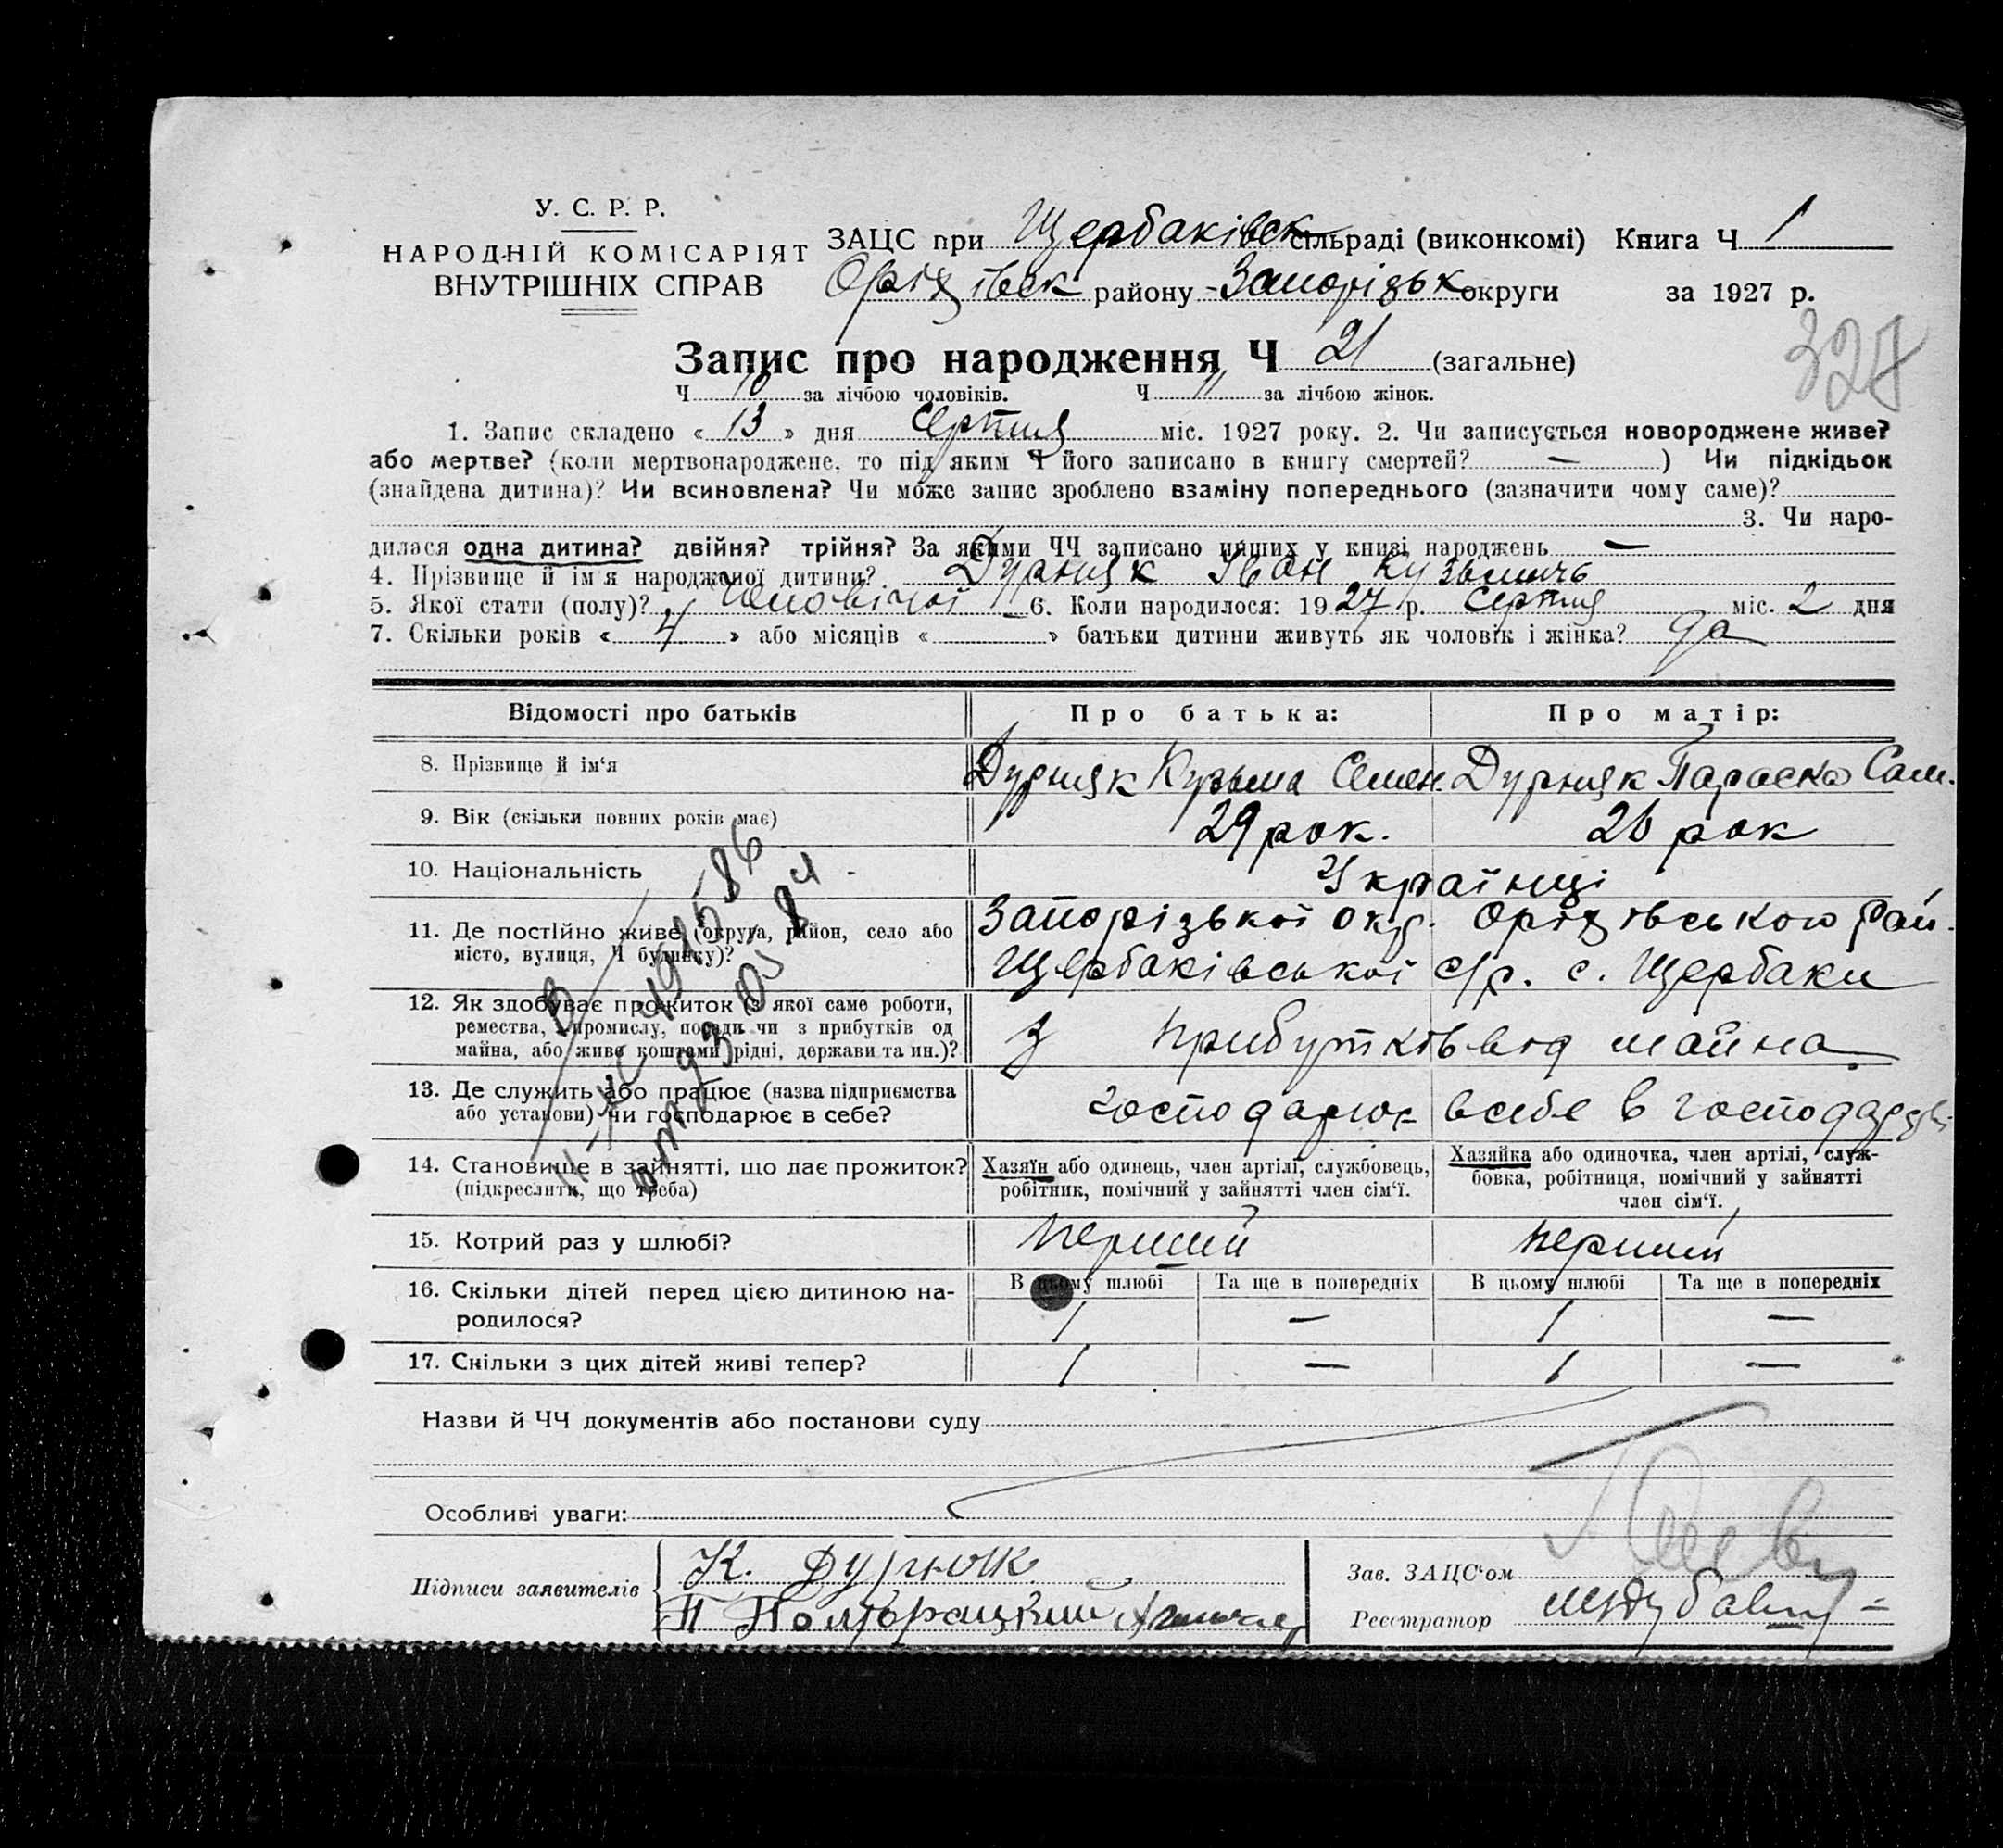 У. С. Р. Р.
НАРОДНІЙ КОМІСАРІЯТ
ВНУТРІШНІХ СПРАВ
ЗАЦС при Щербаківск сільраді (виконкомі) Книга Ч 1
Оріхівск району Запорізьк округи за 1927 р.
327
Запис про народження Ч 21 (загальне)
Ч 10 за лічбою чоловіків. Ч 11 за лічбою жінок.
1. Запис складено « 13 » дня Серпня міс. 1927 року. 2. Чи записується новороджене живе?
або мертве? (коли мертвонароджене, то під яким Ч його записано в книгу смертей? — ) Чи підкідьок
(знайдена дитина)? Чи всиновлена? Чи може запис зроблено взаміну попереднього (зазначити чому саме)?
3. Чи наро-
дилася одна дитина? двійня? трійня? За якими ЧЧ записано инших у книзі народжень —
4. Прізвище й ім'я народженої дитини? Дурняк Іван Кузьмичь
5. Якої стати (полу)? Чоловічої 6. Коли народилося: 1927 р. Серпня міс. 2 дня
7. Скільки років « 4 » або місяців « » батьки дитини живуть як чоловік і жінка? да
Відомості про батьків Про батька: Про матір:
8. Прізвище й ім'я Дурняк Кузьма Семен. Дурняк Параска Сам.
9. Вік (скільки повних років має) 29 рок. 26 рок
10. Національність Українці
11. Де постійно живе (округа, район, село або
місто, вулиця, Ч будинку)?
Запорізької окр. Оріхівського Рай.
Щербаківської с/р. с. Щербаки
12. Як здобуває прожиток (з якої саме роботи,
ремества, промислу, посади чи з прибутків од
майна, або живе коштами рідні, держави та ин.)?
З прибутків від майна
13. Де служить або працює (назва підприємства
або установи) чи господарює в себе?
господарює в себе в господарстві
14. Становище в зайнятті, що дає прожиток?
(підкреслити, що треба)
Хазяїн або одинець, член артілі, службовець,
робітник, помічний у зайнятті член сім'ї.
Хазяйка або одиночка, член артілі, служ-
бовка, робітниця, помічний у зайнятті
член сім'ї.
15. Котрий раз у шлюбі? перший перший
16. Скільки дітей перед цією дитиною на-
родилося?
В цьому шлюбі Та ще в попередніх В цьому шлюбі Та ще в попередніх
1 — 1 —
17. Скільки з цих дітей живі тепер? 1 — 1 —
Назви й ЧЧ документів або постанови суду
Особливі уваги:
Підписи заявителів
К. Дурнюк
П Полторацкий
Зав. ЗАЦС'ом
Реєстратор